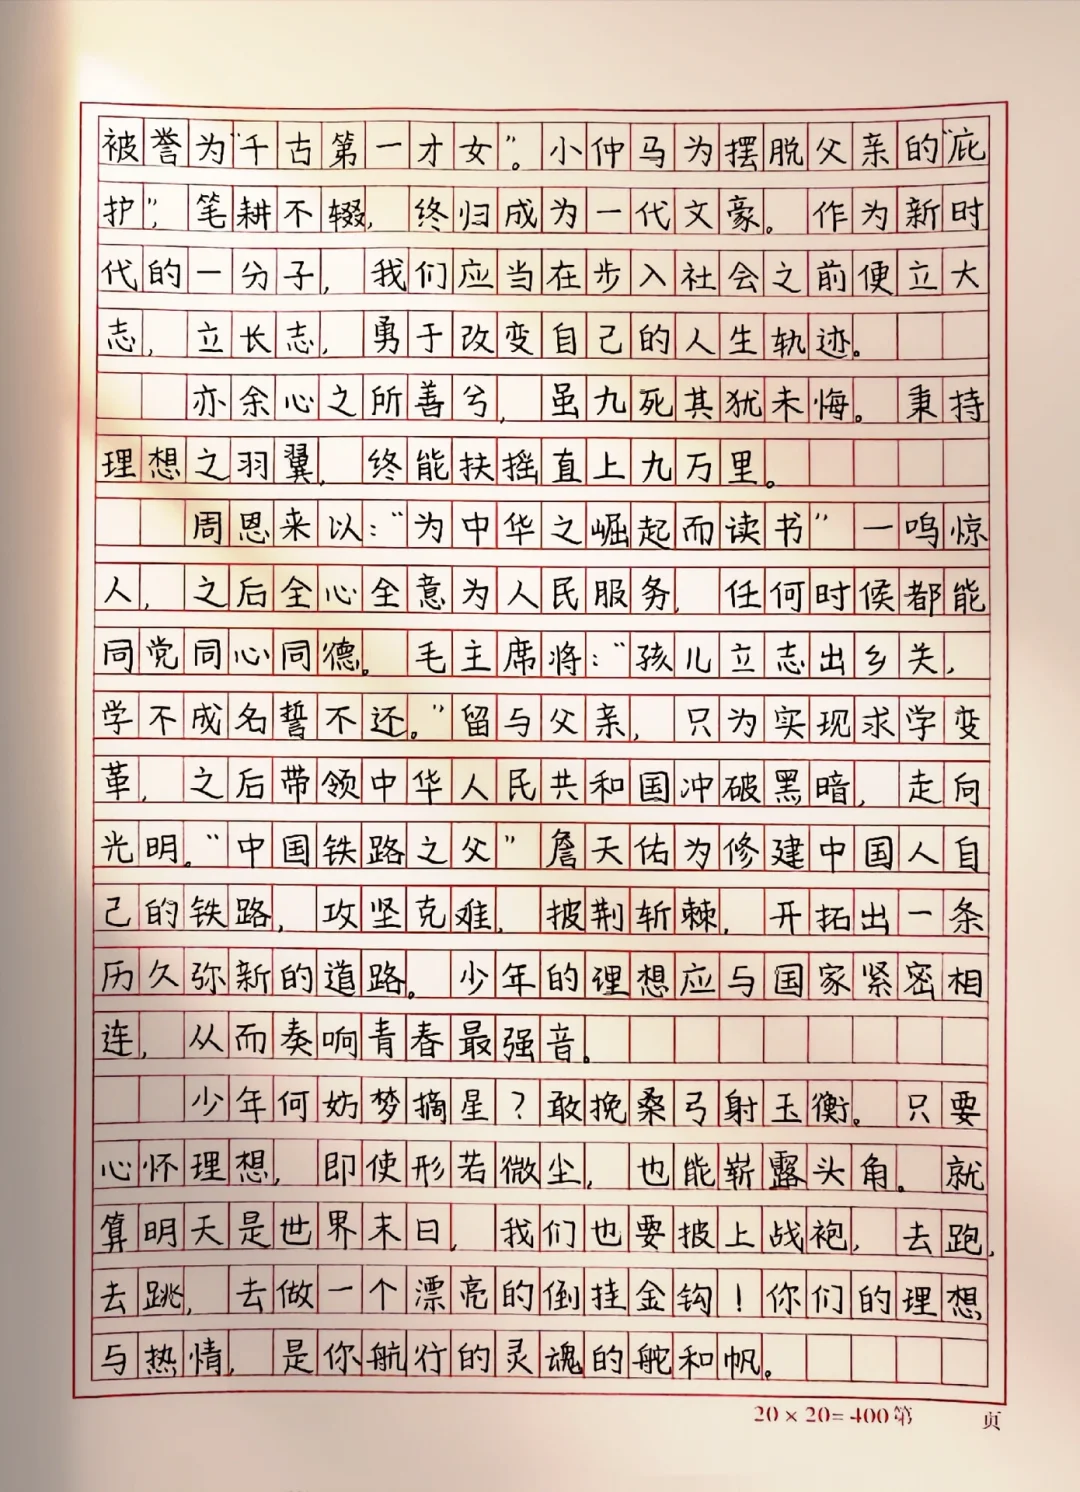 被誉为“千古第一才女”。小仲马为摆脱父亲的“庇
护”，笔耕不辍，终归成为一代文豪。作为新时
代的一分子，我们应当在步入社会之前便立大
志，立长志，勇于改变自己的人生轨迹。
亦余心之所善兮，虽九死其犹未悔。秉持
理想之羽翼，终能扶摇直上九万里。
周恩来以：“为中华之崛起而读书”一鸣惊
人，之后全心全意为人民服务，任何时候都能
同党同心同德。毛主席将：“孩儿立志出乡关，
学不成名誓不还。”留与父亲，只为实现求学变
革，之后带领中华人民共和国冲破黑暗，走向
光明。“中国铁路之父”詹天佑为修建中国人自
己的铁路，攻坚克难，披荆斩棘，开拓出一条
历久弥新的道路。少年的理想应与国家紧密相
连，从而奏响青春最强音。
少年何妨梦摘星？敢挽桑弓射玉衡。只要
心怀理想，即使形若微尘，也能崭露头角。就
算明天是世界末日，我们也要披上战袍，去跑，
去跳，去做一个漂亮的倒挂金钩！你们的理想
与热情，是你航行的灵魂的舵和帆。
20×20=400第 页